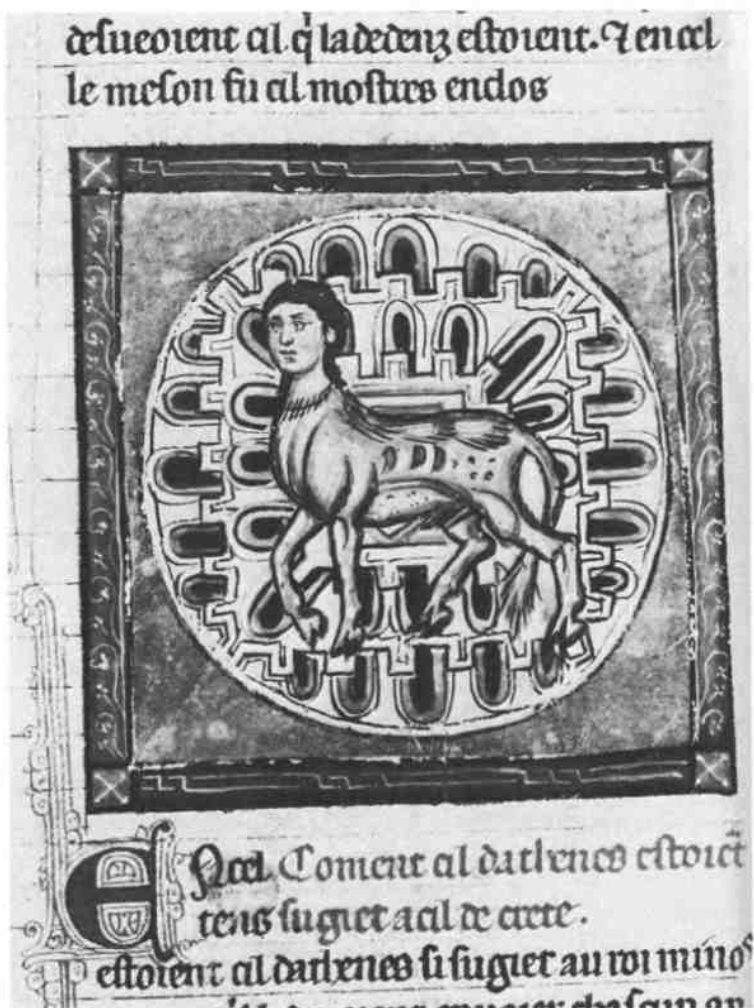 desueoient cil q̃ ladedenz estoient. ⁊ en cel
le meson fu cil mostres enclos
Encel Coment cil dathenes estoiẽt
tens sugiet a cil de crete.
estoient cil dathenes si sugiet au roi minos